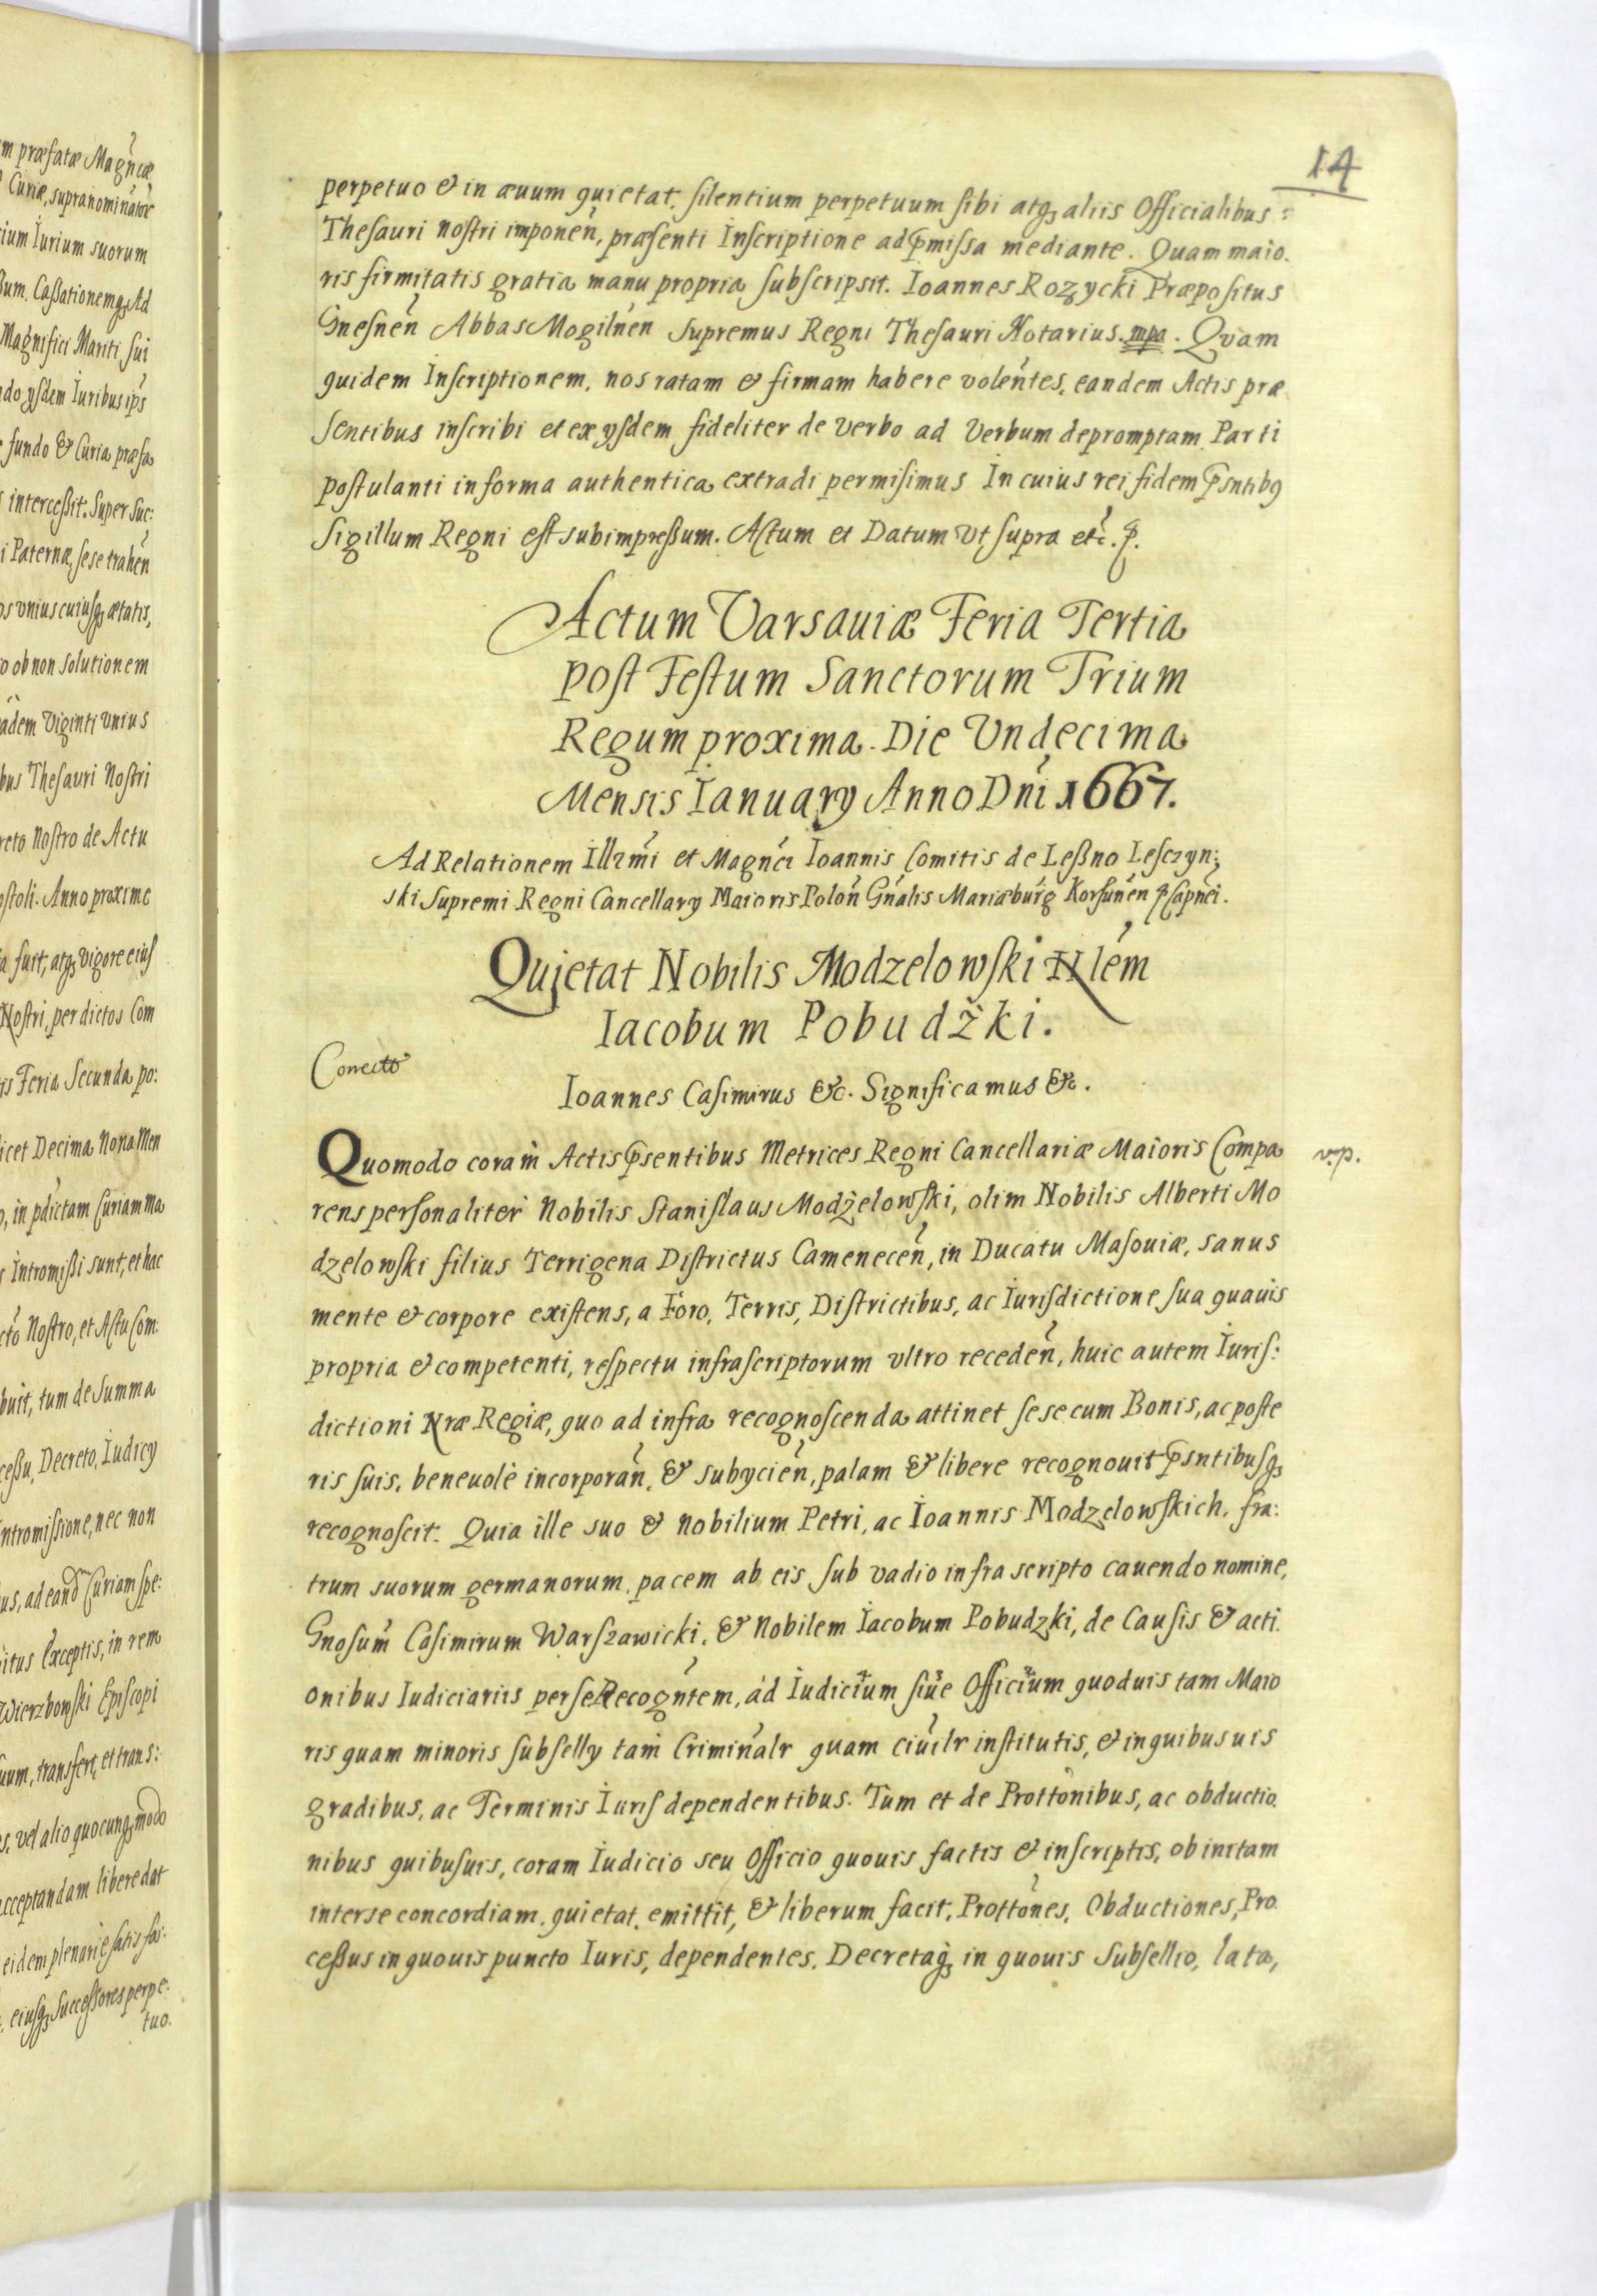 m præfatæ Magñcæ
Curiæ, supranominatæ
ium Iurium suorum
Cassationemq₃ Ad
Magnifici Mariti sui
do ysdem Iuribus ips
fundo & Curia præfa
intercessit. Super Suc:
i Paternæ, sese trahen
os vnius cuiusq₃ ætatis,
o ob non solutionem
adem Viginti vnius
bus Thesauri Nostri
reto Nostro de Actu
ostoli. Anno proxime
a fuit, atq₃ vigore eius
Nostri, per dictos Com
is Feria Secunda po:
icet Decima Nona Men
o, in pdictam Curiam Ma
s Intromissi sunt, et hac
cto Nostro, et Actu Com:
buit, tum de Summa
cessu, Decreto, Iudicy
Intromissione, nec non
us, ad eand Curiam spe:
itus Exceptis, in rem
Wierzbowski Episcopi
suum, transfert et trans:
es. vel alio quocunq₃ modo
acceptandam libere dat
eidem plenarie satis fa:
eiusq₃ Successores perpe:
tuo.
14
perpetuo & in æuum quietat, silentium perpetuum sibi atq₃ aliis Officialibus:
Thesauri nostri imponen̄, præsenti Inscriptione ad p̄missa mediante. Quam maio.
ris firmitatis gratia manu propria subscripsit. Ioannes Rozycki Præpositus
Gnesnen̄ Abbas Mogilnen̄ Supremus Regni Thesauri Notarius. mpa. Qvam
quidem Inscriptionem, nos ratam & firmam habere volentes, eandem Actis præ
sentibus inscribi et ex ysdem fideliter de verbo ad Verbum depromptam Parti
postulanti in forma authentica extradi permisimus In cuius rei fidem p̄sntibq
Sigillum Regni est subimpressum. Actum et Datum vt supra etc. p.
Actum Varsauiæ Feria Tertia
post Festum Sanctorum Trium
Regum proxima. Die Vndecima
Mensis Ianuary Anno Dni 1667.
Ad Relationem Illrmi et Magnci Ioannis Comitis de Leßno Lesczyn:
ski Supremi Regni Cancellary Maioris Polon̄ Gnalis Mariæburg Korsunen̄ p Capnei.
Quietat Nobilis Modzelowski Nlem
Iacobum Pobudżki.
Correcto
Ioannes Casimirus &c. Significamus &c.
Quomodo coram Actis p̄sentibus Metrices Regni Cancellariæ Maioris Compa
rens personaliter Nobilis Stanislaus Modżelowski, olim Nobilis Alberti Mo
dzelowski filius Terrigena Districtus Camenecen̄, in Ducatu Masouiæ, sanus
mente & corpore existens, a Foro, Terris, Districtibus, ac Iurisdictione sua quauis
propria & competenti, respectu infrascriptorum vltro receden̄, huic autem Iuris:
dictioni Nræ Regiæ, quo ad infra recognoscenda attinet sese cum Bonis, ac poste
ris suis, beneuolè incorporan̄, & subycien̄, palam & libere recognouit p̄sntibusq₃
recognoscit. Quia ille suo & Nobilium Petri, ac Ioannis Modzelowskich, fra:
trum suorum germanorum, pacem ab eis sub vadio infra scripto cauendo nomine,
Gnosum Casimirum Warszawicki, & Nobilem Iacobum Pobudzki, de Causis & acti.
onibus Iudiciariis per se Recogntem, ad Iudicium siue Officium quoduis tam Maio
ris quam minoris subselly tam Criminalr quam ciuilr institutis, & in quibusuis
gradibus, ac Terminis Iuris dependentibus. Tum et de Prottonibus, ac obductio.
nibus quibusuis, coram Iudicio seu Officio quouis factis & inscriptis, ob initam
inter se concordiam, quietat, emittit, & liberum facit, Prottones, Obductiones, Pro
cessus in quouis puncto Iuris, dependentes. Decretaq₃ in quouis Subsellio, lata,